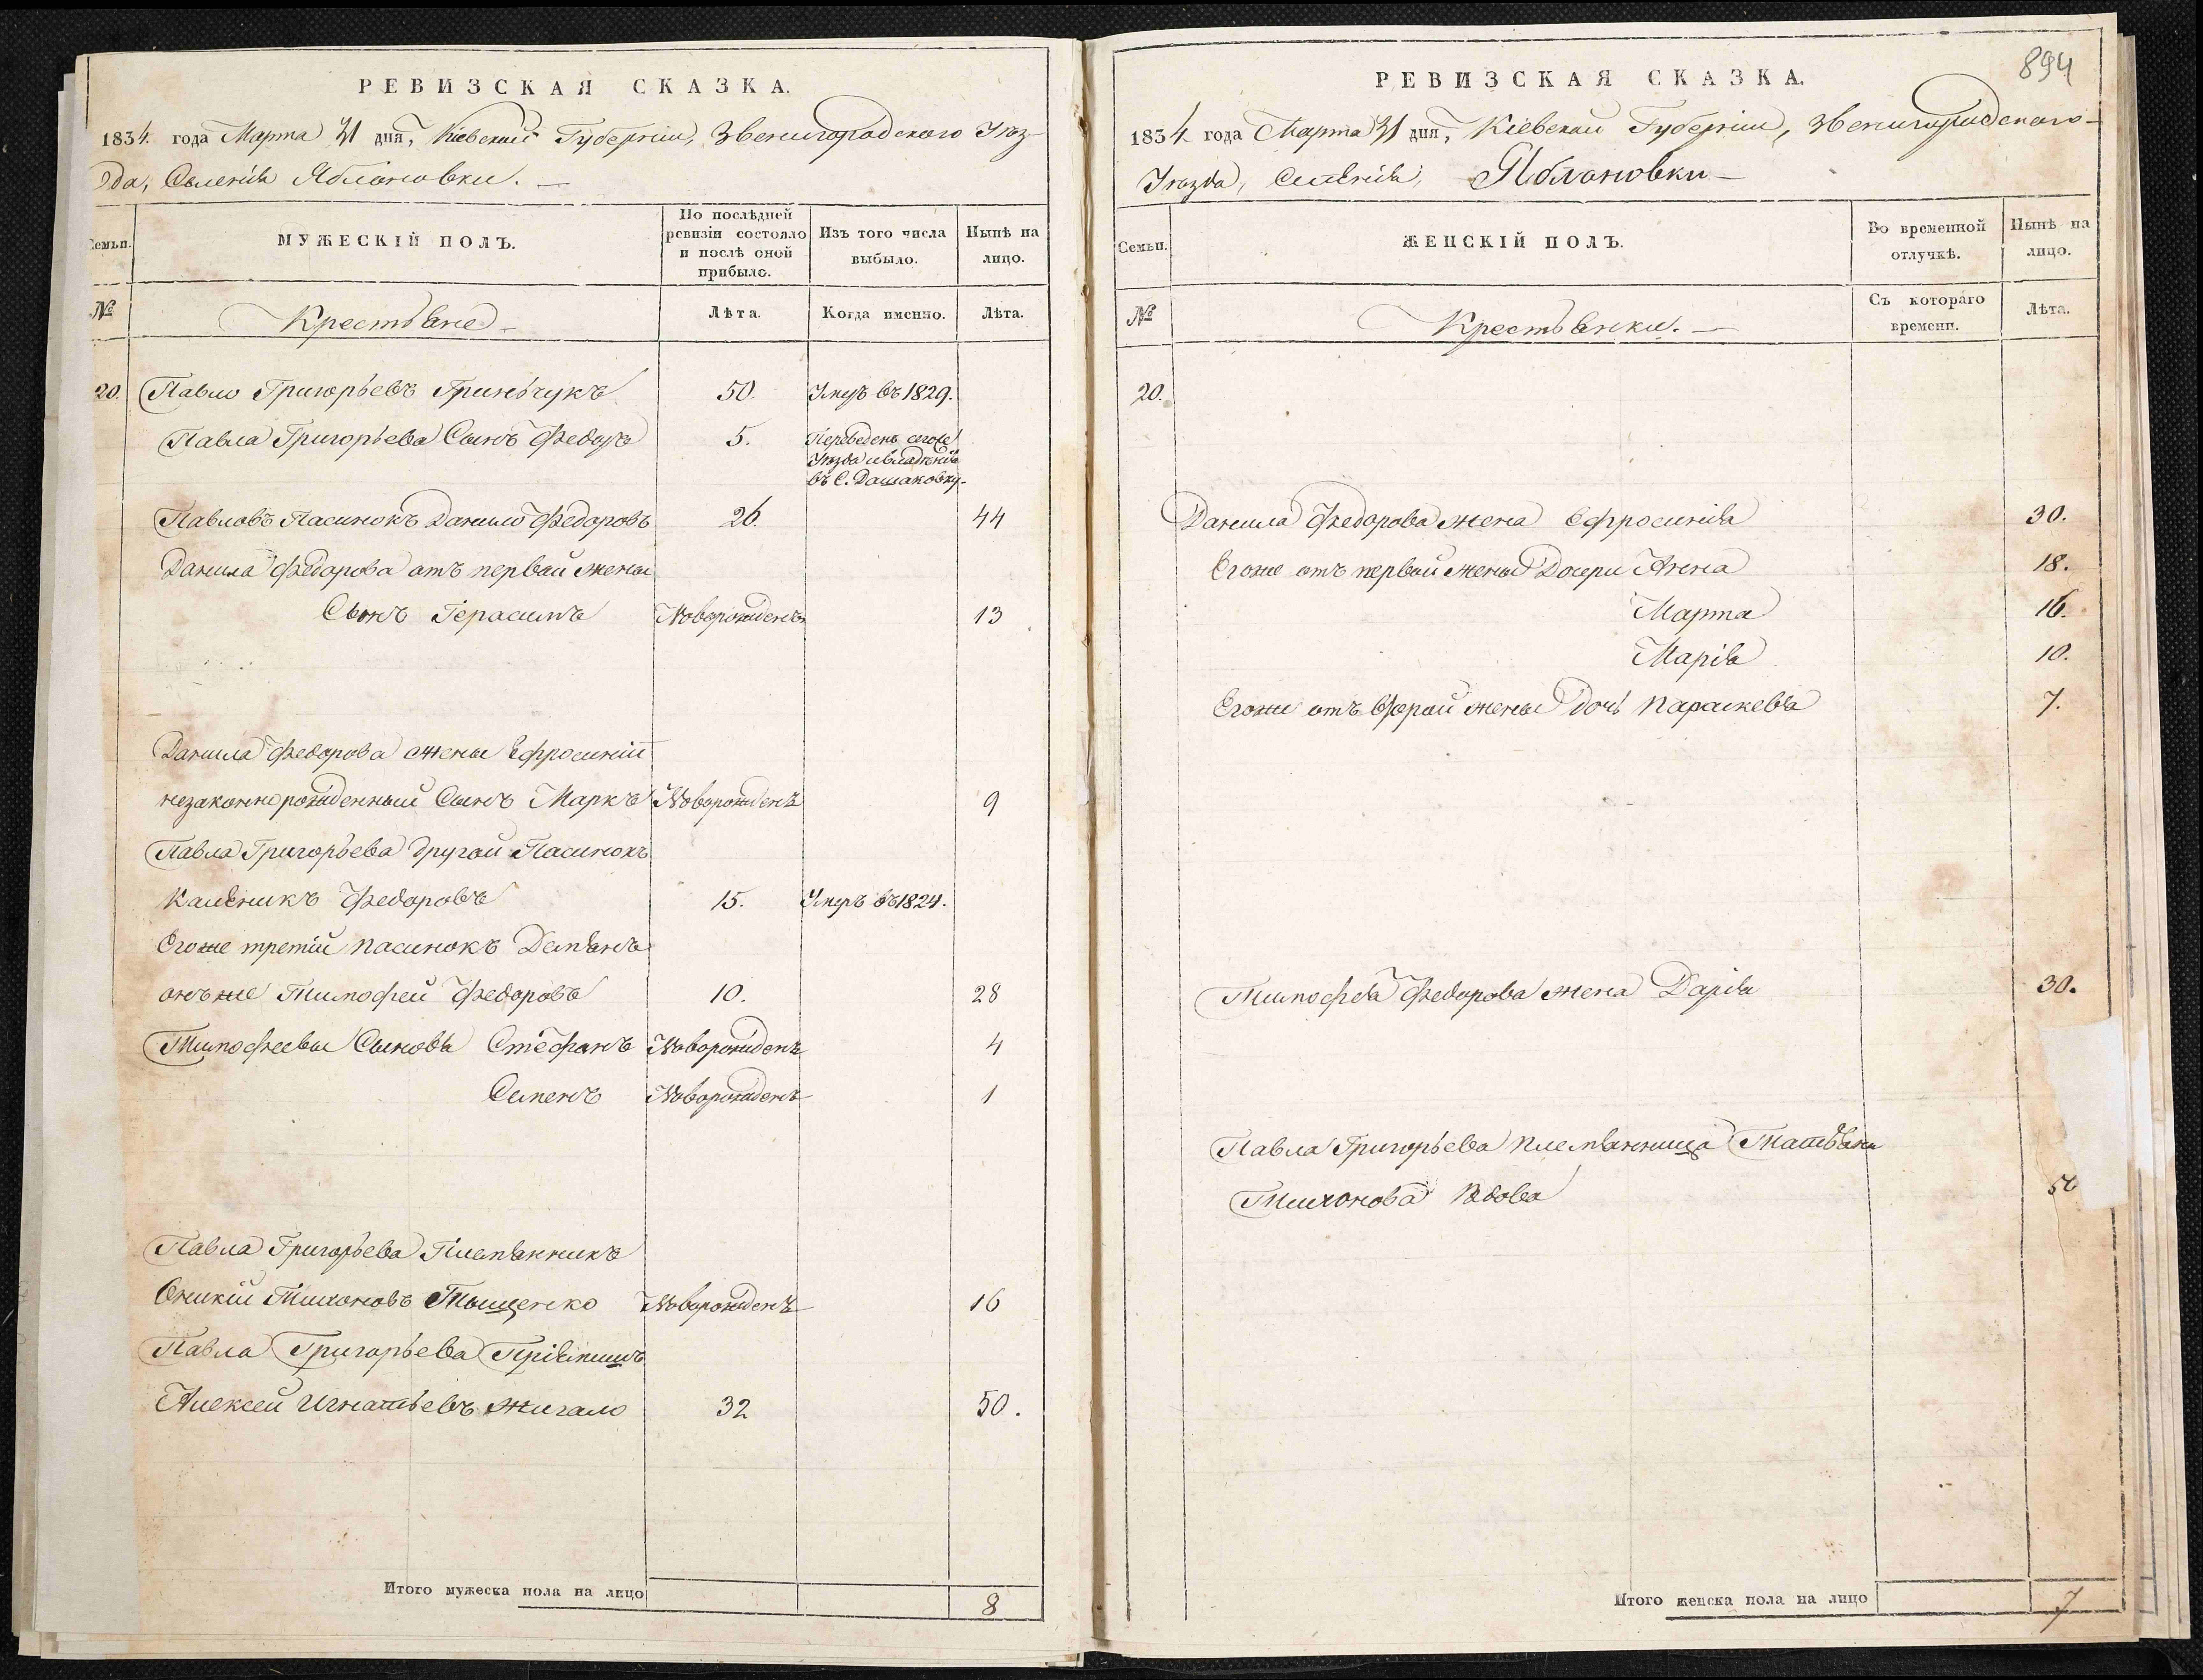 РЕВИЗСКАЯ СКАЗКА.
1834. года Марта 31 дня, Кіевской Губерніи, Звенигородского Уѣз-
да, Селенія Яблоновки. —
Семьи.
МУЖЕСКІЙ ПОЛЪ.
По послѣдней ревизіи состояло и послѣ оной прибыло.
Изъ того числа выбыло.
Нынѣ на лицо.
№
Крестьяне —
Лѣта.
Когда именно.
Лѣта.
20. Павло Григорьевъ Гриньчукъ 50. Умеръ въ 1829.
Павла Григорьева Сынъ Федоръ 5. Переведенъ сегоже
Уѣзда и владѣнія
въ С. Дашаковку.
Павловъ Пасинокъ Данило Федоровъ 26. 44
Данила Федорова отъ первой жены
Сынъ Герасимъ Новорожденъ 13
Данила Федорова жены Ефросиніи
незаконнорожденный Сынъ Маркъ Новорожденъ 9
Павла Григорьева другой Пасинокъ
Каленикъ Федоровъ 15. Умеръ въ 1824.
Егоже третій пасинокъ Демьянъ
онъже Тимофей Федоровъ 10. 28
Тимофеевы Сыновья Стефанъ Новорожденъ 4
Семенъ Новорожденъ 1
Павла Григорьева Племянникъ
Оникій Тихоновъ Тыщенко Новорожденъ 16
Павла Григорьева Пріимышъ
Алексей Игнатьевъ Жигало 32 50.
Итого мужеска пола на лицо 8
894
РЕВИЗСКАЯ СКАЗКА.
1834 года Марта 31 дня, Кіевской Губерніи, Звенигородского —
Уѣзда, Селенія, Яблоновки —
Семьи.
ЖЕНСКІЙ ПОЛЪ.
Во временной отлучкѣ.
Нынѣ на лицо.
№
Крестьянки. —
Съ котораго времени.
Лѣта.
20.
Данила Федорова жена Ефросинія 30.
Егоже отъ первой жены Дочери Анна 18.
Марта 16.
Марія 10.
Егоже отъ второй жены дочь Параскевія 7.
Тимофея Федорова жена Дарія 30.
Павла Григорьева племянница Татьяна
Тихонова вдова
Итого женска пола на лицо 7